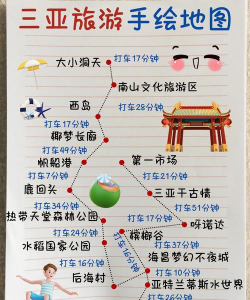 三亚旅游手绘地图
大小洞天
打车17分钟
南山文化旅游区
打车28分钟
西岛
打车17分钟
椰梦长廊
打车49分钟
帆船港
第一市场
打车7分钟
打车21分钟
鹿回头
三亚千古情
打车34分钟
打车51分钟
热带天堂森林公园
打车17分钟
呀诺达
打车24分钟
槟榔谷
水稻国家公园
打车37分钟
打车16分钟
海昌梦幻不夜城
打车16分钟
打车10分钟
后海村
亚特兰蒂斯水世界
打车26分钟